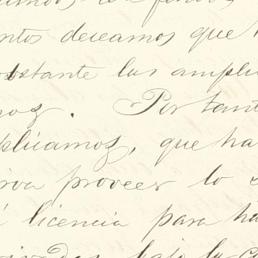 ntos deceamos que
obstante las ampli
moz. Por tant
plicamoz, que ha
rva proveer lo
á licencia para ha